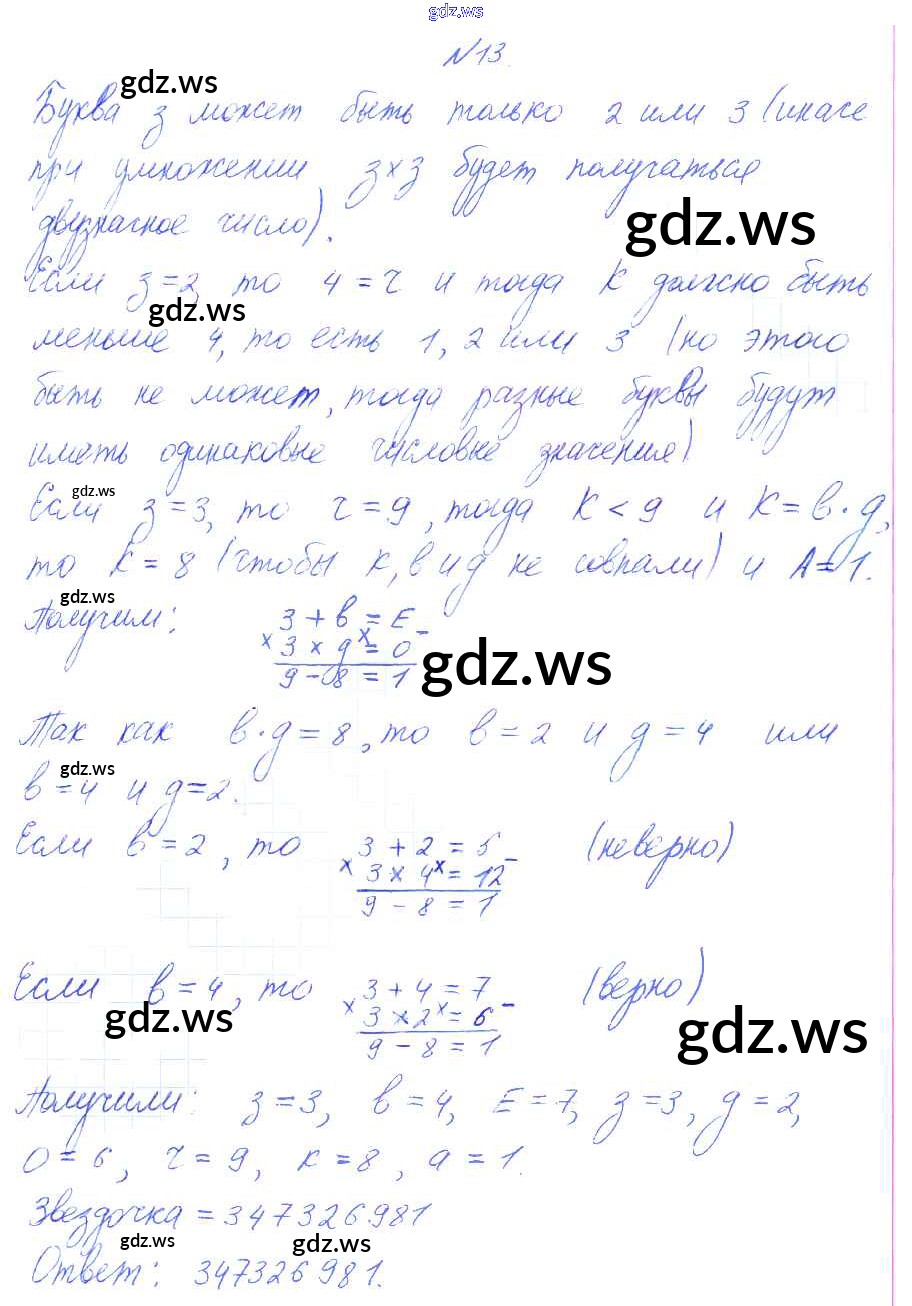 gdz.ws
N13.
gdz.ws
Буква з может быть только 2 или 3 (иначе
при умножении з×з будет получаться
двузначное число).
gdz.ws
Если з=2, то 4=ч и тогда к должно быть
gdz.ws
меньше 4, то есть 1, 2 или 3 (но этого
быть не может, тогда разные буквы будут
иметь одинаковые числовые значения)
gdz.ws
Если з=3, то ч=9, тогда к<9 и к=в·д,
то к=8 (чтобы к, в и д не совпали) и А=1.
gdz.ws
Получим: 3+в=Е
× 3×д×=О −
9−8=1
gdz.ws
Так как в·д=8, то в=2 и д=4 или
gdz.ws
в=4 и д=2.
Если в=2, то 3+2=5 (неверно)
× 3×4×=12 −
9−8=1
Если в=4, то 3+4=7 (верно)
× 3×2×=6 −
9−8=1
gdz.ws
gdz.ws
Получили: з=3, в=4, Е=7, з=3, д=2,
О=6, ч=9, к=8, а=1.
Звездочка = 347326981
gdz.ws
gdz.ws
Ответ: 347326981.